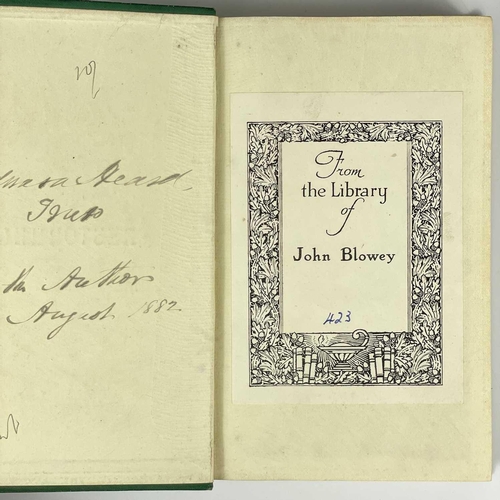 10/
Heard,
Truro
the Author
August 1882
From
the Library
of
John Blowey
423